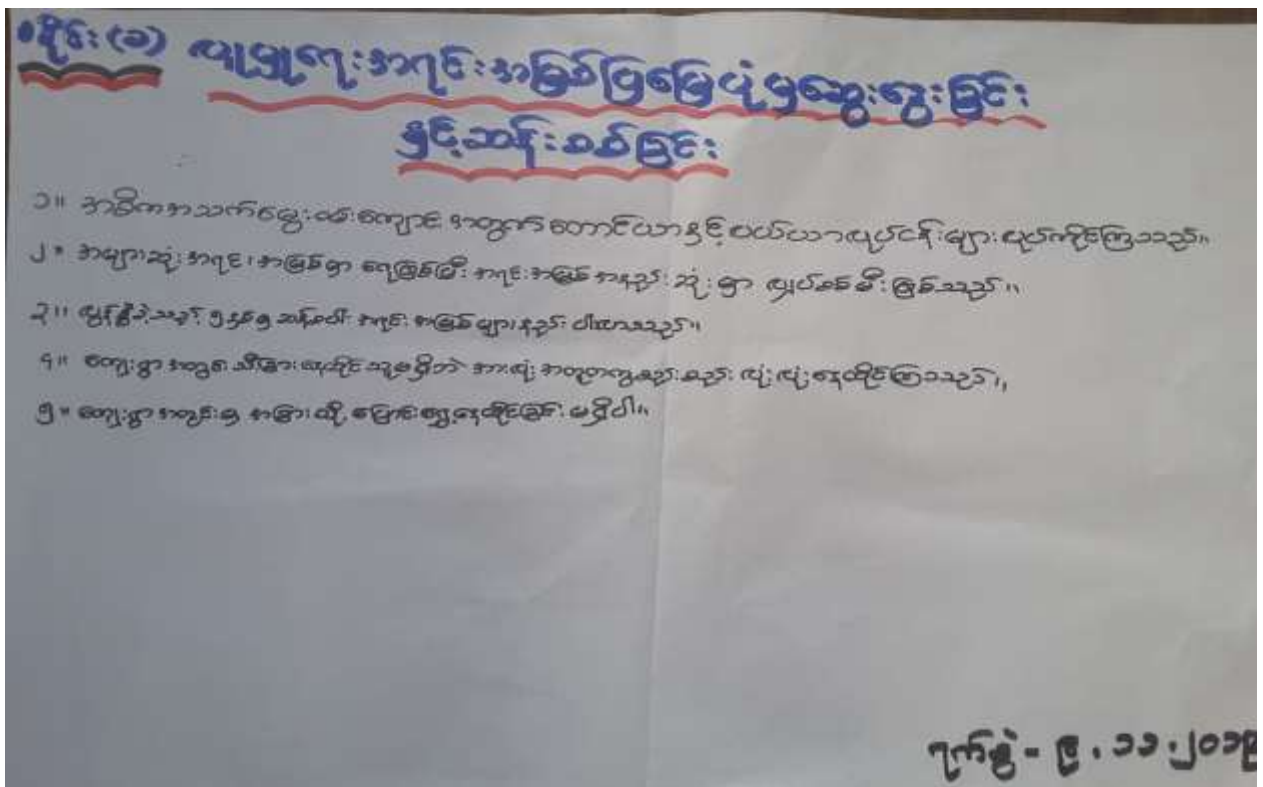 ဝိုင်း(၁) လူမှုရေးအရင်းအမြစ်ပြမြေပုံမှဆွေးနွေးခြင်း
နှင့်ဆန်းစစ်ခြင်း
၁။ အဓိကအသက်မွေးဝမ်းကျောင်းအတွက်တောင်ယာနှင့်စပယ်ယာလုပ်ငန်းများ လုပ်ကိုင်ကြသည်။
၂။ အများဆုံးအရင်းအမြစ်မှာ ရေဖြစ်ပြီး အရင်းအမြစ်အနည်းဆုံးမှာ လျှပ်စစ်မီးဖြစ်သည်။
၃။ လွန်ခဲ့သည့် ၅နှစ်မှ အရင်းအမြစ်များနည်းပါးလာသည်။
၄။ ကျေးရွာအတွင်း သီးခြားနေထိုင်သူမရှိဘဲ အားလုံးအတူတကွစည်းစည်းလုံးလုံးနေထိုင်ကြသည်။
၅။ ကျေးရွာအတွင်းမှ အခြားသို့ပြောင်းရွှေ့နေထိုင်ခြင်း မရှိပါ။
ရက်စွဲ - ၉.၁၁.၂၀၁၉